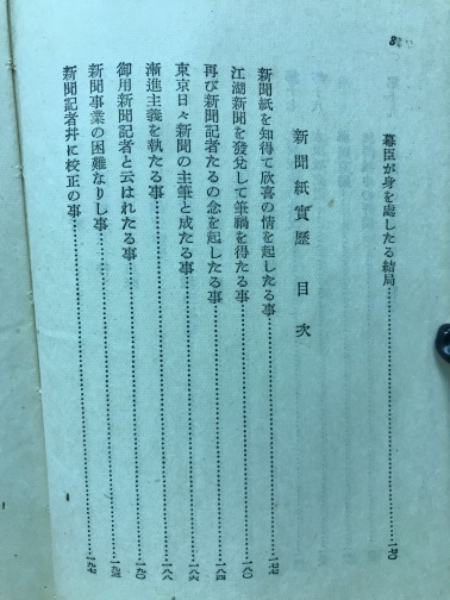 幕臣が身を處したる結局……一七〇
新聞紙實歷 目次
新聞紙を知得て欣喜の情を起したる事……一七七
江湖新聞を發兌して筆禍を得たる事……一八〇
再び新聞記者たるの念を起したる事……一八四
東京日々新聞の主筆と成たる事……一八六
漸進主義を執たる事……一八八
御用新聞記者と云はれたる事……一九〇
新聞事業の困難なりし事……一九三
新聞記者幷に校正の事……一九七